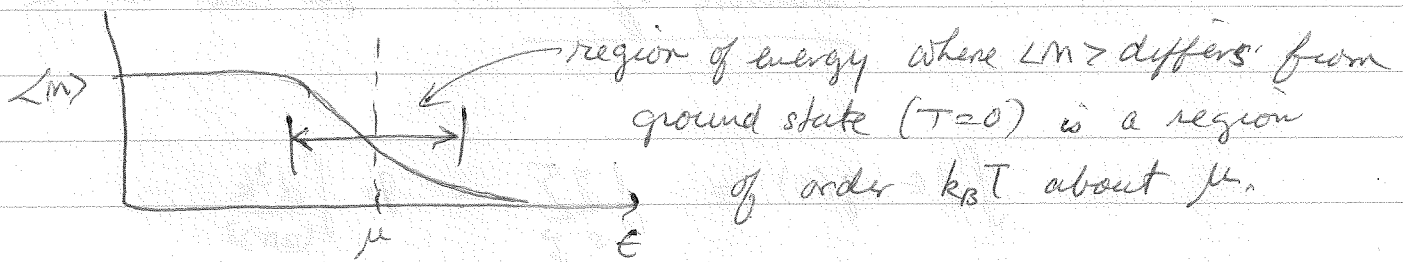 region of energy where <n> differs from
<n>
ground state (T=0) is a region
of order k_BT about μ.
μ
ϵ